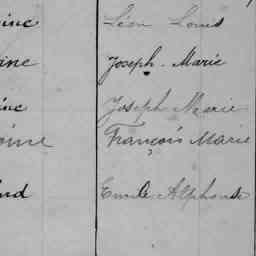 oine Léon Louis
oine Joseph Marie
oine Joseph Marie
oine François Marie
nd Emile Alphonse